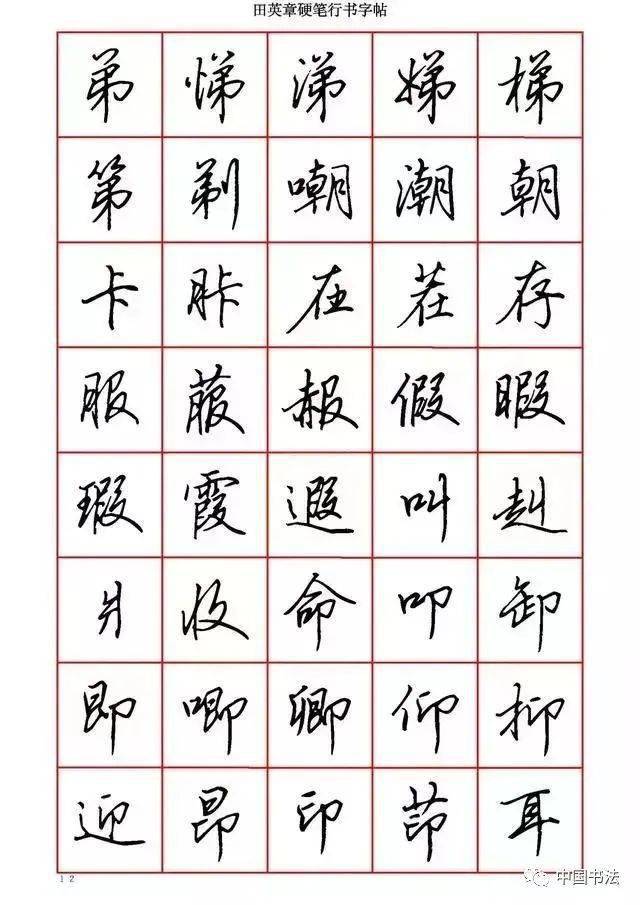 田英章硬笔行书字帖
弟 悌 涕 娣 梯
第 剃 嘲 潮 朝
卡 胩 在 茬 存
服 菔 赧 假 暇
瑕 霞 遐 叫 赳
收 命 叩 卸
即 唧 卿 仰 抑
迎 昂 印 茚 耳
12
中国书法